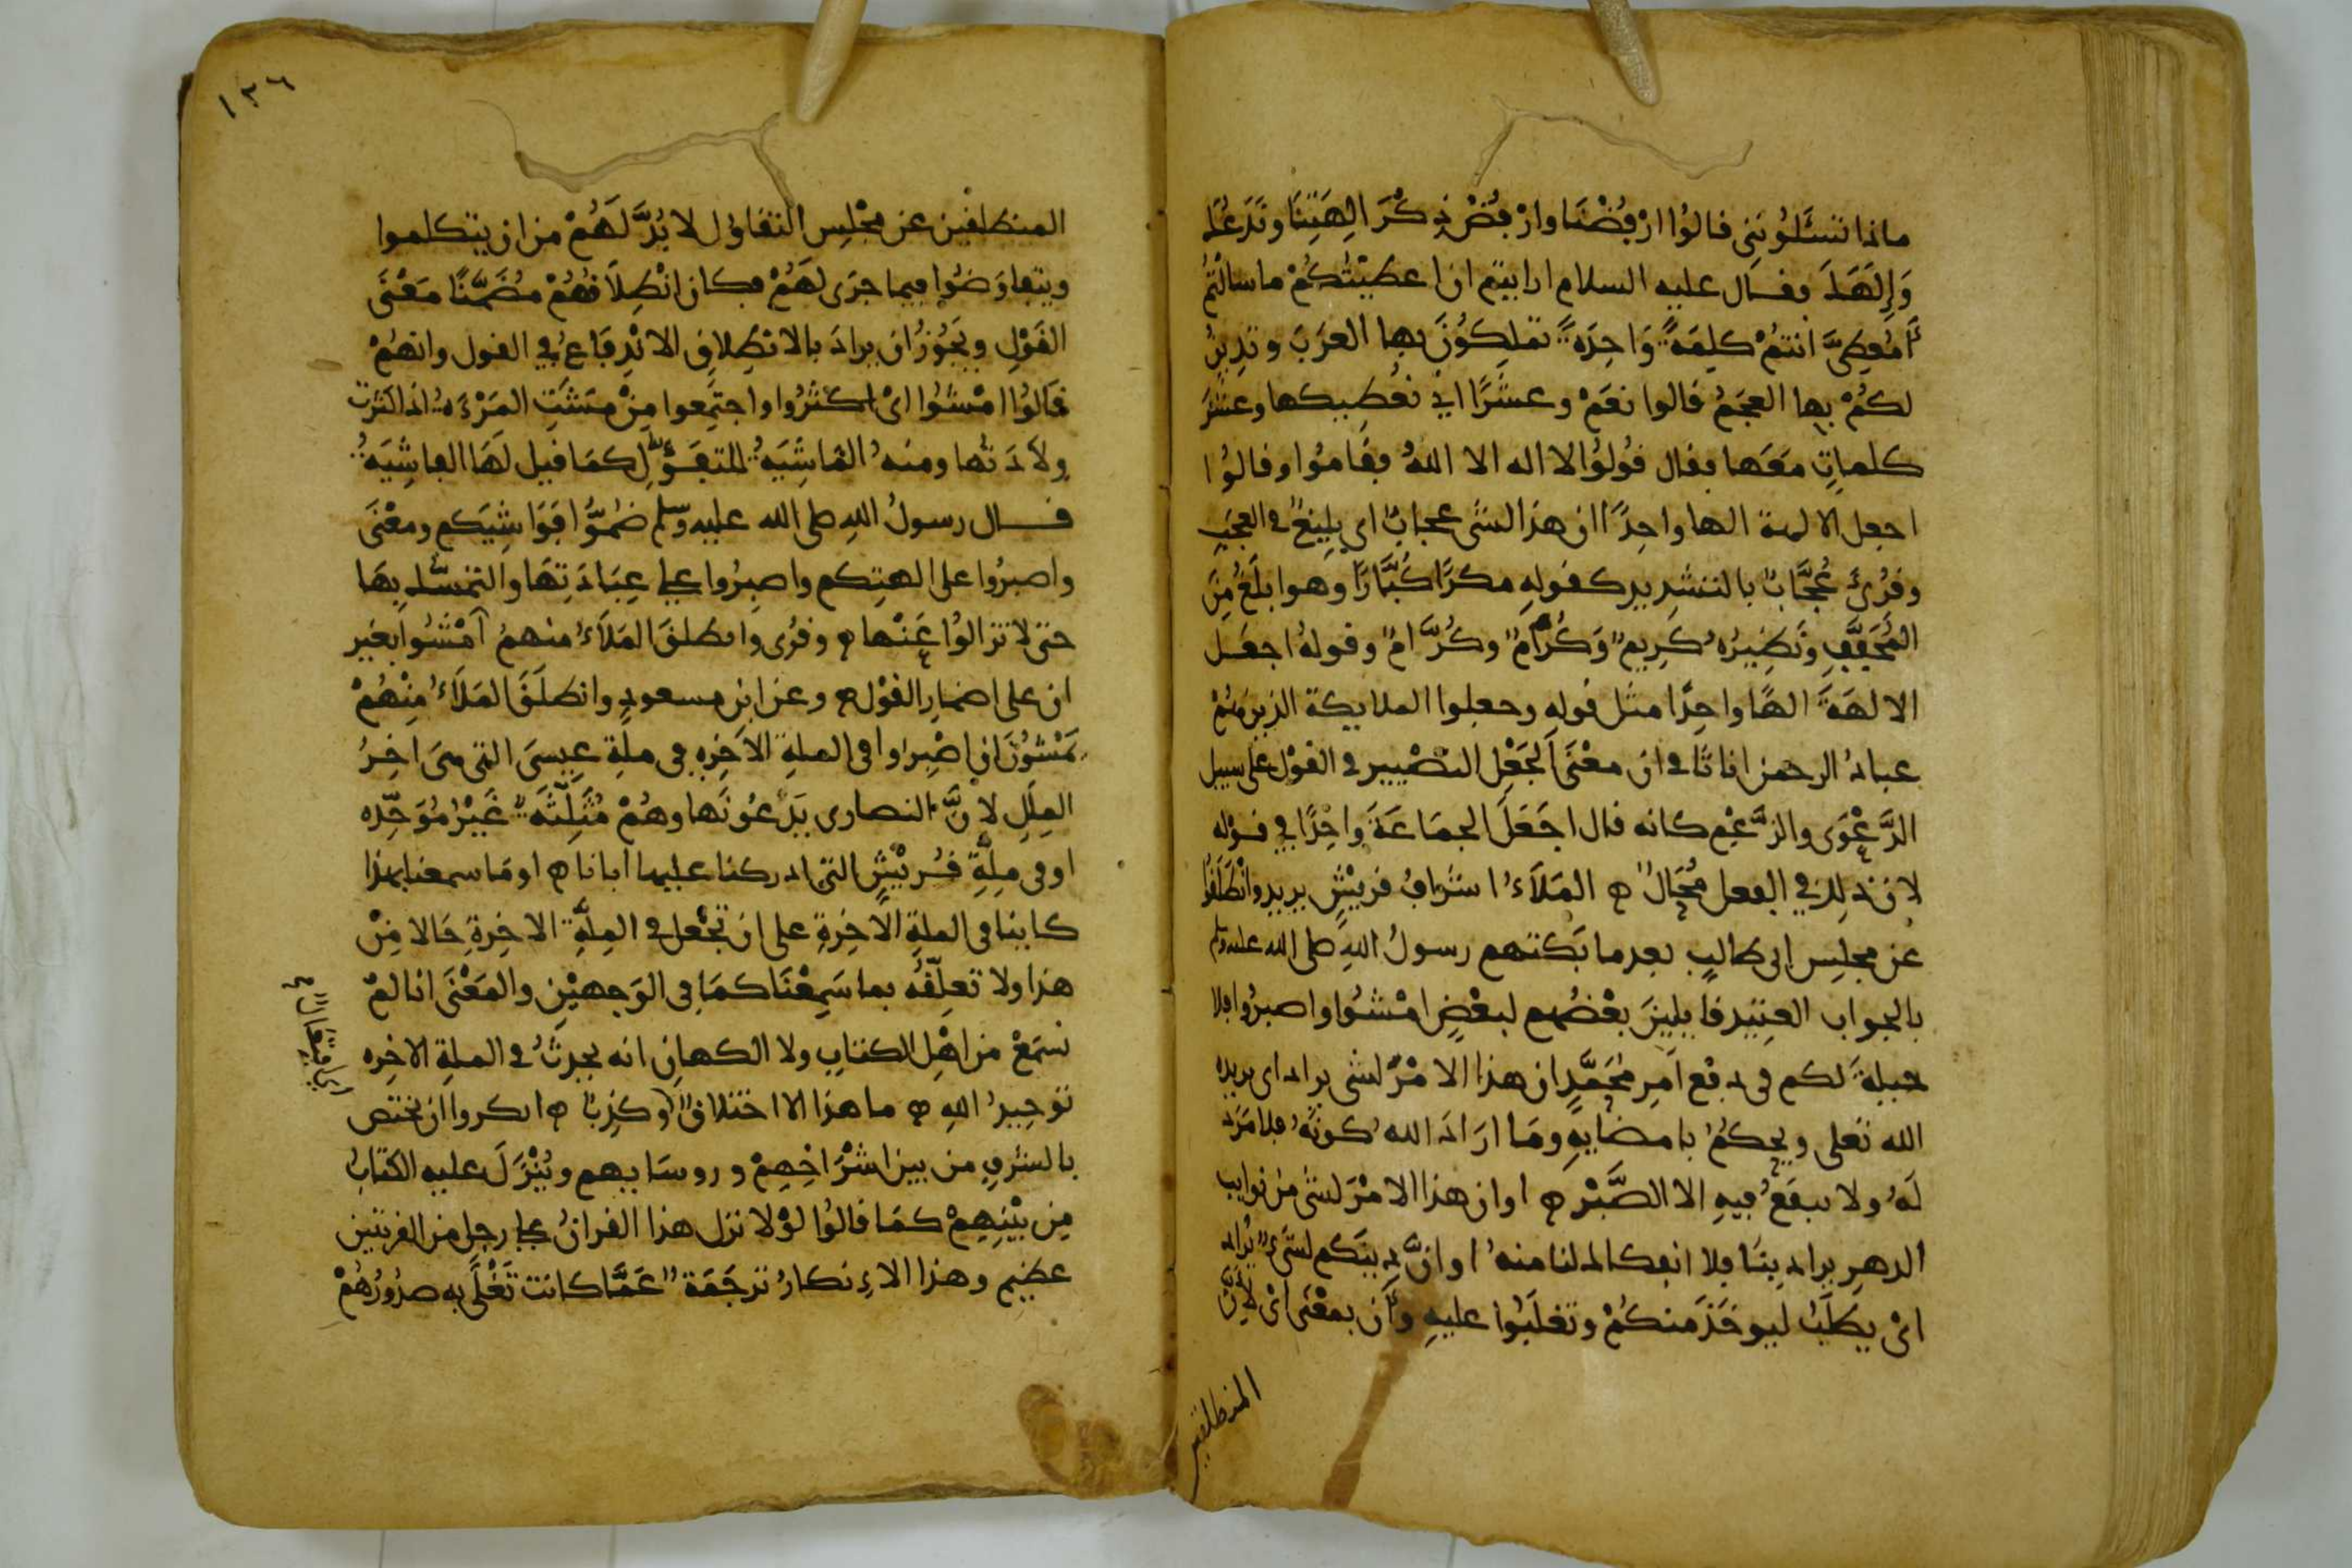 ماذا تسئلونني قالوا ارفضنا وارفض ذكر الهتنا وندعك
وإلهك فقال عليه السلام ارايتم ان اعطيتكم ما سالتم
أمعطيّ انتم كلمة واحدة تملكون بها العرب وتدين
لكم بها العجم قالوا نعم وعشرًا اي نعطيكها وعشر
كلمات معها فقال قولوا لا اله الا الله فقاموا وقالوا
اجعل الالهة الها واحدًا ان هذا لشى عجاب اى بليغ في العجب
وقرئ عُجَّاب بالتشديد كقوله مكرًا كُبَّارًا وهو ابلغ من
المخفّف ونظيره كريم وكُرَام وكُرّام وقوله اجعل
الالهة الهًا واحدًا مثل قوله وجعلوا الملايكة الذين هم
عباد الرحمن اناثا في ان معنى الجعل التصيير في القول على سبيل
الدّعوى والزّعم كانه قال اجعل الجماعة واحدًا في قوله
لان ذلك في الفعل مُحَال ه الملأ اشراف قريش يريد وانطلقوا
عن مجلس ابى طالب بعد ما بكتهم رسول الله صلى الله عليه وسلم
بالجواب العتيد قايلين بعضهم لبعض امشوا واصبروا فلا
حيلة لكم فى دفع امر محمّد ان هذا الامر لشى يراد اى يريده
الله تعلى ويحكم بامضايه وما اراد الله كونه فلا مرد
له ولا ينفع فيه الا الصّبر ه او ان هذا الامر لشى من نوايب
الدهر يراد بنا فلا انفكاك لنا منه او انّ دينكم لشىء يراد
اى يطلب ليوخذ منكم وتغلبوا عليه وأن بمعنى اى لأنّ
المنطلقين
١٣٦
المنطلقين عن مجلس التقاول لا بدّ لهم من ان يتكلموا
ويتفاوضوا فيما جرى لهم فكان انطلاقهم مضمّنًا معنى
القول ويجوز ان يراد بالانطلاق الاندفاع في القول وانهم
قالوا امشوا اى اكثروا واجتمعوا من مشت المرءة اذا كثرت
ولادتها ومنه الماشية للتفوّل كما قيل لها الفاشية
قال رسول الله صلى الله عليه وسلم ضمّوا فواشيكم ومعنى
واصبروا على الهتكم واصبروا على عبادتها والتمسّك بها
حتى لا تزالوا عنها ه وقرى وانطلق الملأ منهم امشوا بغير
ان على اضمار القول ه وعن ابن مسعود وانطلق الملأ منهم
يمشون ان اصبروا فى الملة الاخره فى ملة عيسى التى هى اخر
الملل لانّ النصارى يدعونها وهم مثلّثة غير موحّده
او فى ملّة قريش التى ادركنا عليها اباناه او ما سمعنا بهذا
كاينا فى الملة الاخرة على ان تجعل في الملّة الاخرة حالا من
هذا ولا تعلّقه بما سمعنا كما فى الوجهين والمعنى انا لم
نسمع من اهل الكتاب ولا الكهان انه يحدث في الملة الاخره
توحيد الله ه ما هذا الا اختلاق وكذب ه انكروا ان يختص
بالشرف من بين اشرافهم وروسايهم وينزل عليه الكتاب
من بينهم كما قالوا لولا نزل هذا القران على رجل من القريتين
عظيم وهذا الإنكار ترجمة عمّا كانت تغلى به صدورهم